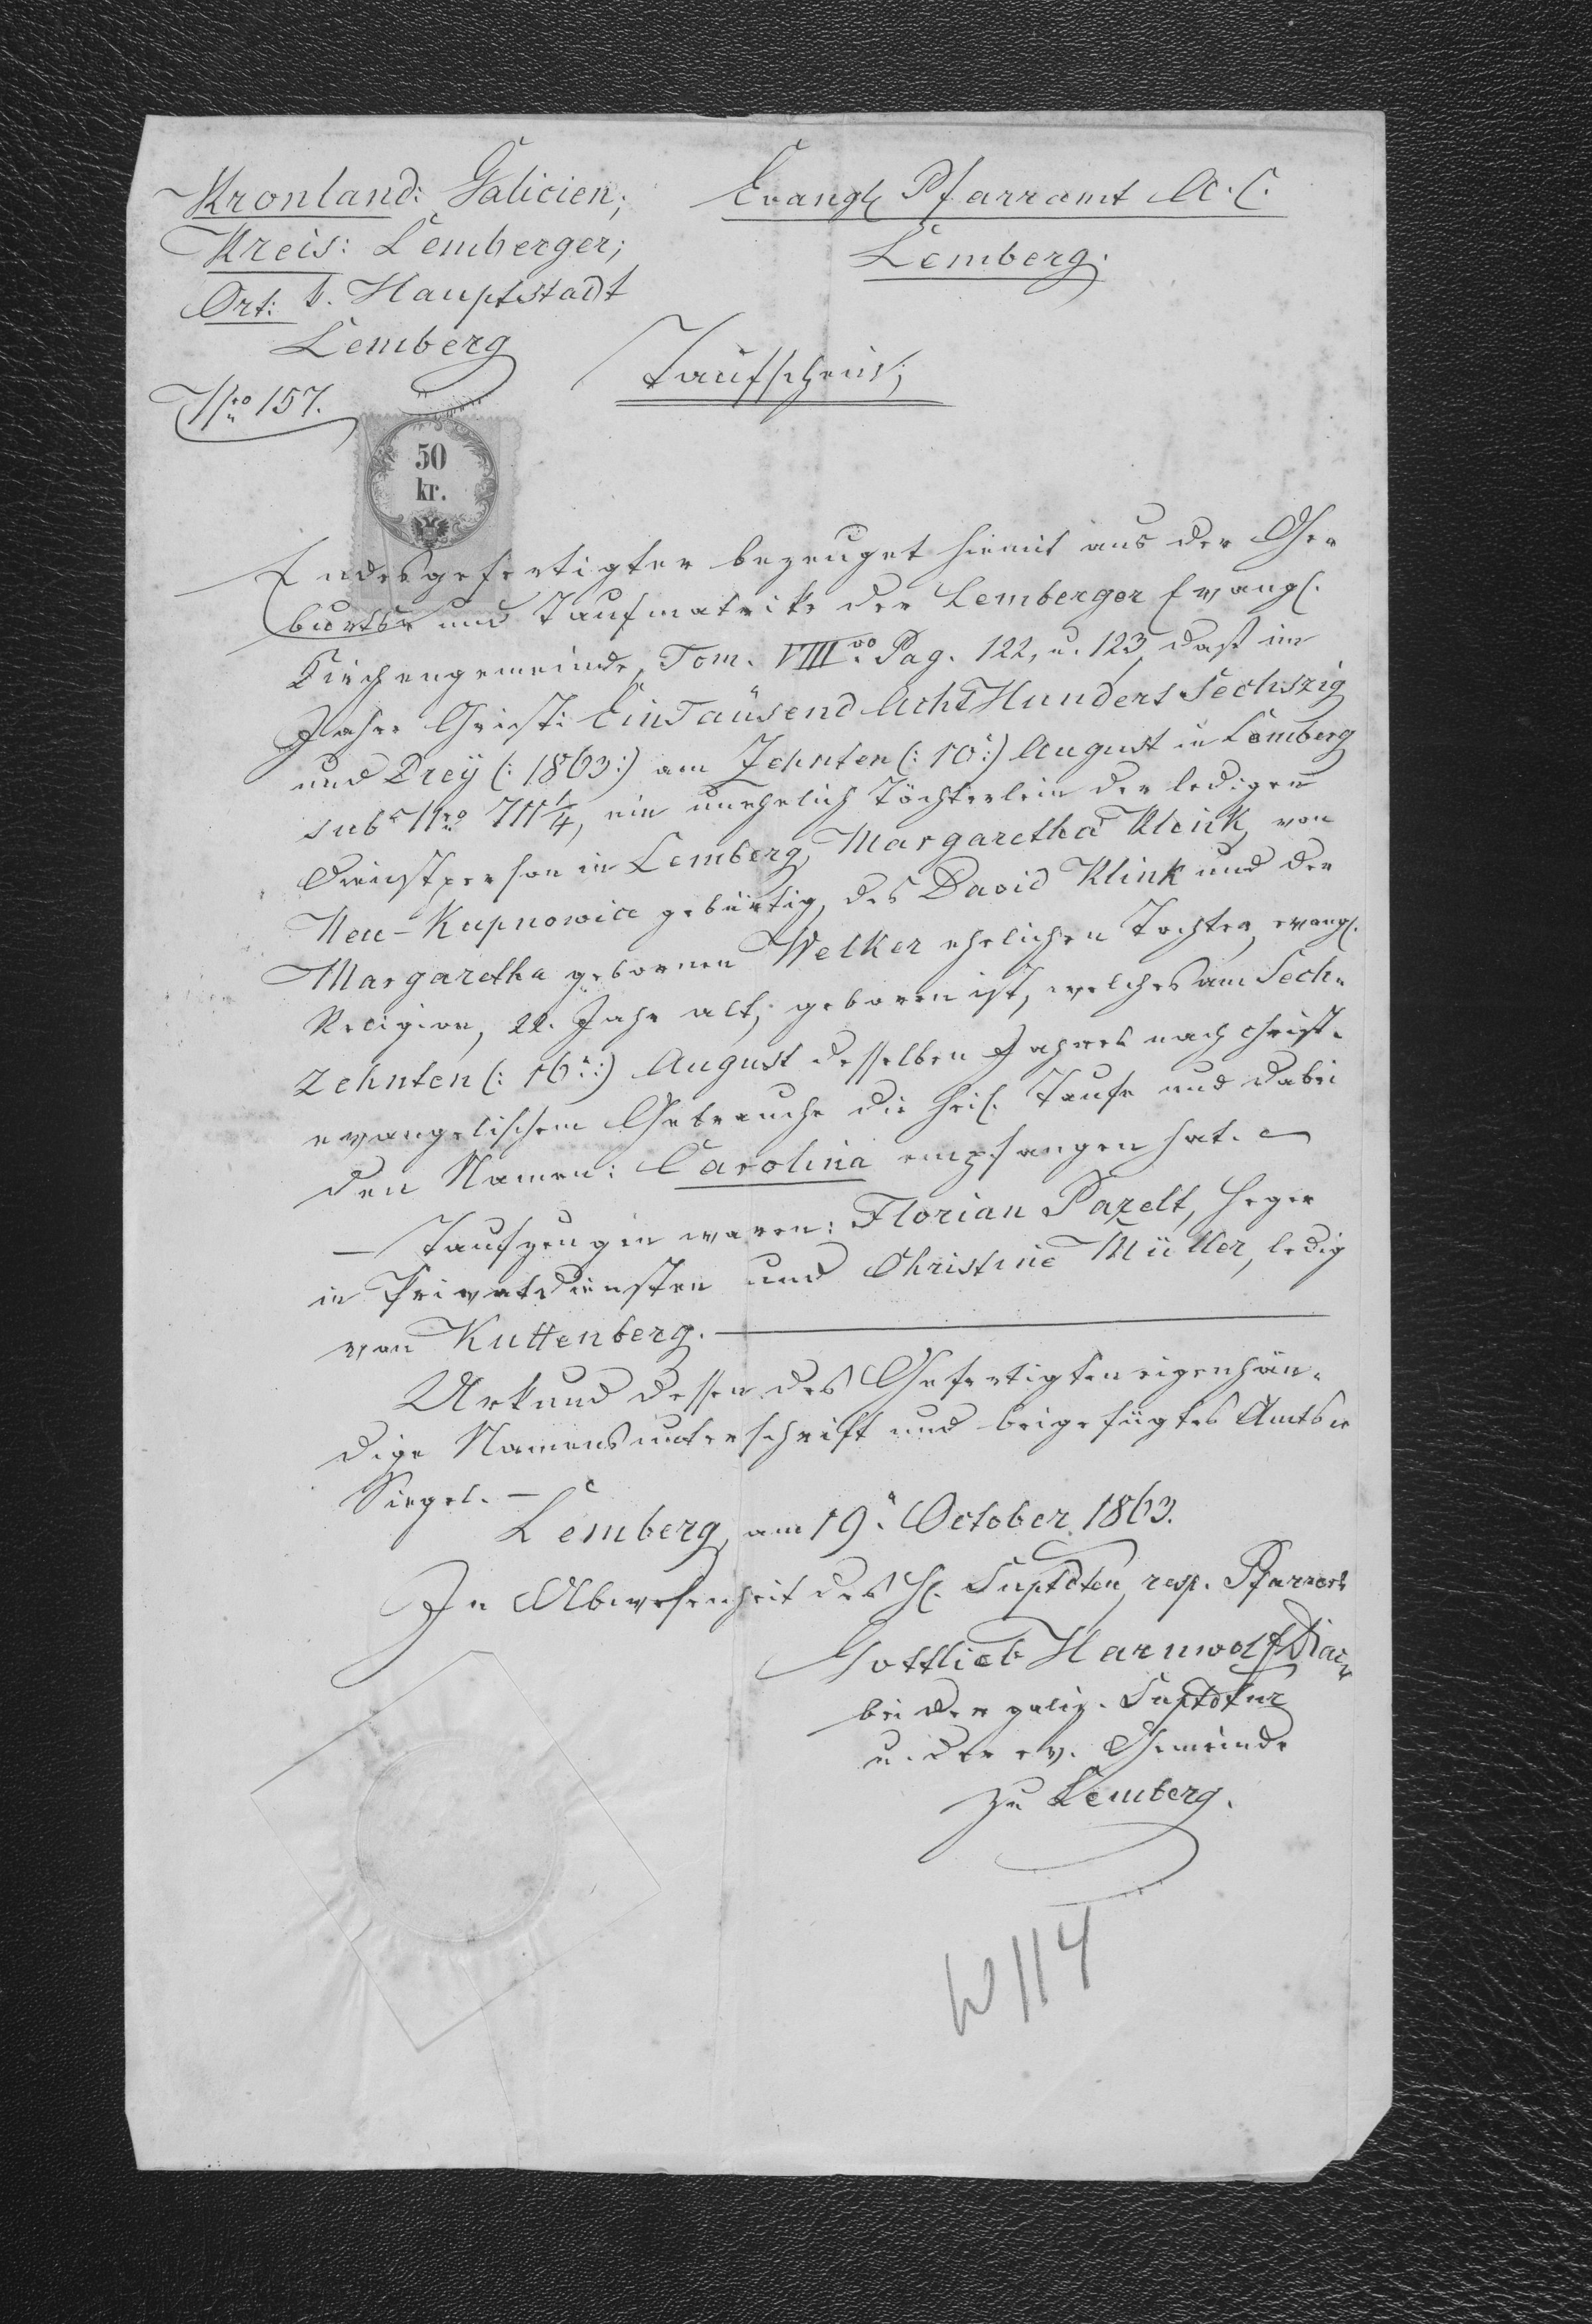 Kronland: Galicien;
Kreis: Lemberger;
Ort: k. Hauptstadt
Lemberg
Nro 157.
Evangl. Pfarramt A. C.
Lemberg.
Taufschein;
50
kr.
Endesgefertigter bezeuget hiemit aus der Ge-
burts- und Taufmatrike der Lemberger Evangl.
Kirchengemeinde, Tom. VIIIvo Pag. 122, u. 123, daß im
Jahre Christi EinTausend AchtHundert Sechszig
und Dreÿ (: 1863 :) am Zehnten (: 10. :) August in Lemberg
sub Nro 711 1/4, ein unehelich Töchterlein der ledigen
Dienstperson in Lemberg, Margaretha Klenk, von
Neu-Kupnowice gebürtig, des David Klink und der
Margaretha gebornen Welker ehelichen Tochter, evangl.
Religion, 22. Jahr alt, geboren ist, welches am Sech-
zehnten (: 16. :) August desselben Jahres nach christ-
evangelischem Gebrauche die heil. Taufe und dabei
den Namen: Carolina empfangen hat. —
— Taufzeugen waren: Florian Pazelt, Heger
in Privatdiensten und Christine Müller, ledig
von Kuttenberg. —
Urkund dessen des Gefertigten eigenhän-
dige Namensunterschrift und beigefügtes Amts-
Siegel. —
Lemberg, am 19. October 1863.
In Abwesenheit des H. Suptdten, resp. Pfarrers
Gottlieb Harnwolf, Diac.
bei der galiz. Suptdtur
u. der ev. Gemeinde
zu Lemberg.
W114